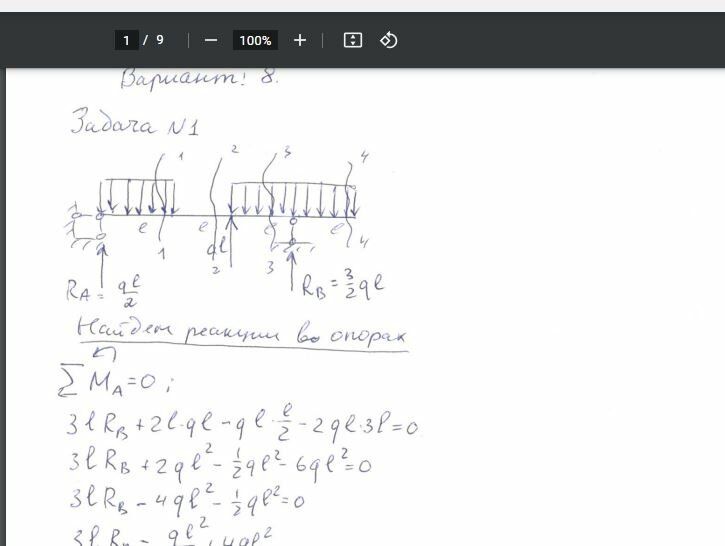 1 / 9
100%
Вариант: 8.
Задача N1
1 2 3 4
l l l l
1 2 ql 3 4
R_A = ql/2
R_B = 3/2 ql
Найдем реакции во опорах
∑ M_A = 0 ;
3l R_B + 2l·ql - ql · l/2 - 2ql·3l = 0
3l R_B + 2ql² - 1/2 ql² - 6ql² = 0
3l R_B - 4ql² - 1/2 ql² = 0